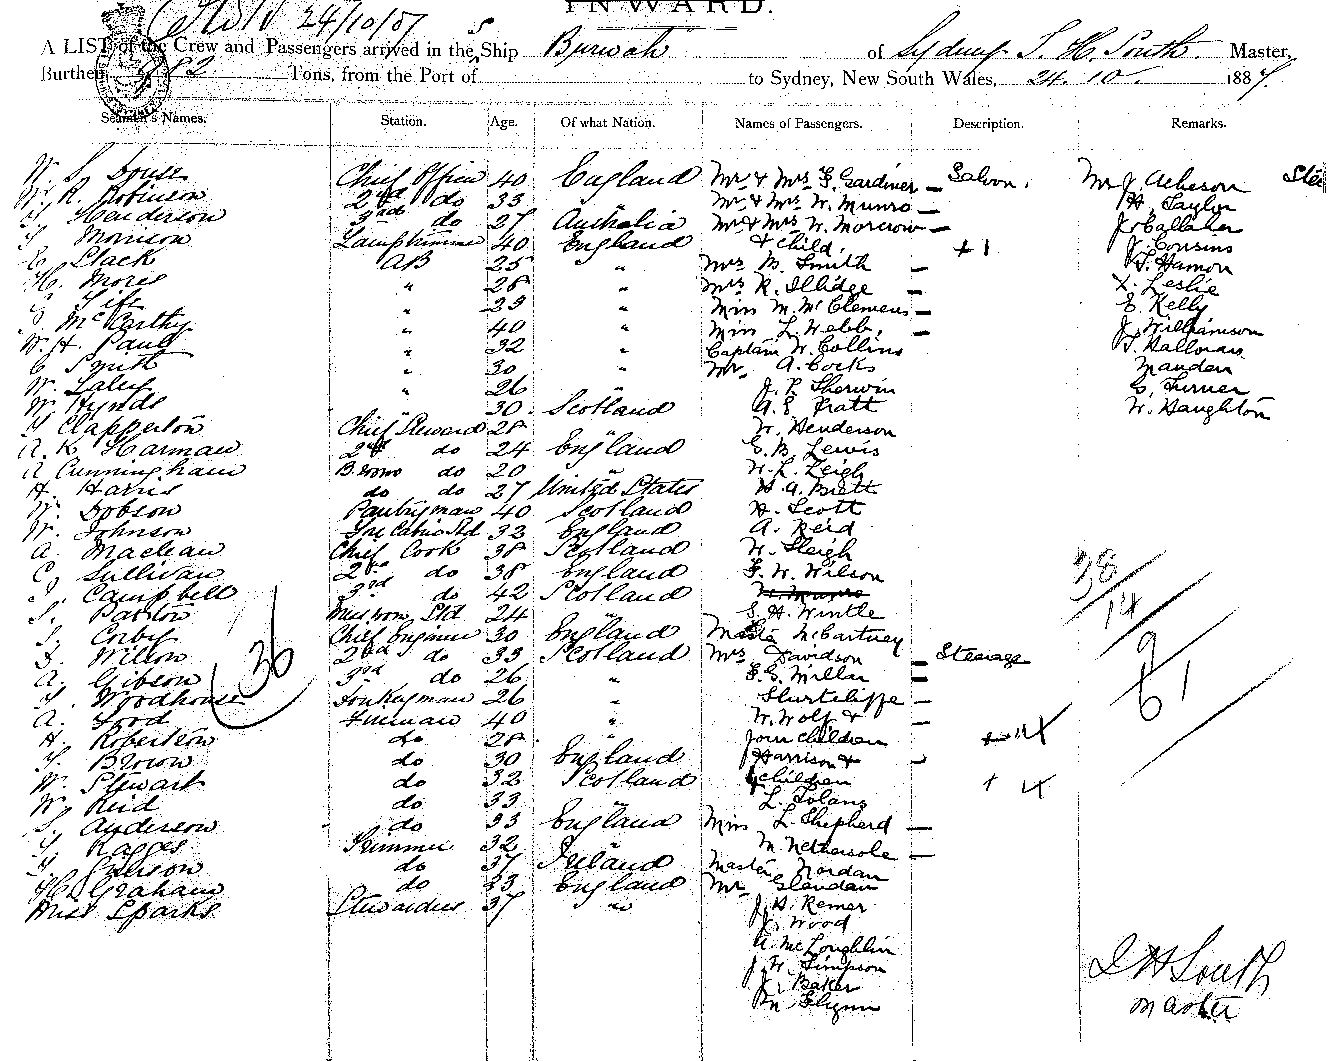 INWARD.
24/10/87
A LIST of the Crew and Passengers arrived in the SS Ship Burwah of Sydney S. H. South Master,
Burthen 982 Tons, from the Port of to Sydney, New South Wales, 24. 10. 1887.
Seamen's Names. Station. Age. Of what Nation. Names of Passengers. Description. Remarks.
W. S. Douse Chief Officer 40 England Mr & Mrs F. Gardiner Saloon. Mr J. Acheson
W. R. Robinson 2nd do 33 Mr & Mrs W. Munro H. Taylor
Henderson 3rd do 27 Australia Mr & Mrs W. Morcrow J. Callaher
Morrison Lamptrimmer 40 England & child. + 1 J. Cousins
Slack AB 25 " Mrs B. Smith Hamon
H. Mores " 28 " Mrs R. Illidge Leslie
" 29 " Miss M. McClemens E. Kelly
McCarthy " 40 " Miss L. Webb. J. Williamson
W. H. Paul " 32 " Captain W. Collins T. Halloran
C. Smith " 30 " Mr. A. Cocks
W. Laley " 26 " J. P. Sherwin G. Turner
W. Hynds 30 Scotland A. E. Pratt W. Haughton
Clapperton Chief Steward 28 " W. Henderson
A. K. Harman 2nd do 24 England E. B. Lewis
A Cunningham do 20 " W. L. Leigh
H. Harris do do 27 United States H. A. Brett
W. Dobson Pantryman 40 Scotland H. Scott
W. Johnson Fore Cabin Std 32 England A. Reid
A. Maclean Chief Cook 38 Scotland W. Sleigh
C. Sullivan 2nd do 38 England F. W. Wilson
J. Campbell 3rd do 42 Scotland W. Munro
S. Barton Messroom Std 24 " E. H. Wintle
S. Corby Chief Engineer 30 England Master McCartney
Wilson 2nd do 33 Scotland Mrs Davidson Steerage
A. Gibson 3rd do 26 " F. G. Miller
Woodhouse Donkeyman 26 "
A. Ford Fireman 40 " W. Wolf &
H. Robertson do 28 " four children + 4
Brown do 30 England Harrison &
W. Stewart do 32 Scotland 4 children + 4
W. Reid do 33 " L. Tolans
S. Anderson do 33 England Miss L. Shepherd
Ragges Trimmer 32 " M. Nethersole
do 37 Ireland Master
H. Graham do 33 England Mr
Miss Sparks Stewardess 37 " J. H. Remer
J. Wood
A. McLoughlin
J. W. Simpson
J. Baker
Flynn
36
38
14
9
61
S H South
Master